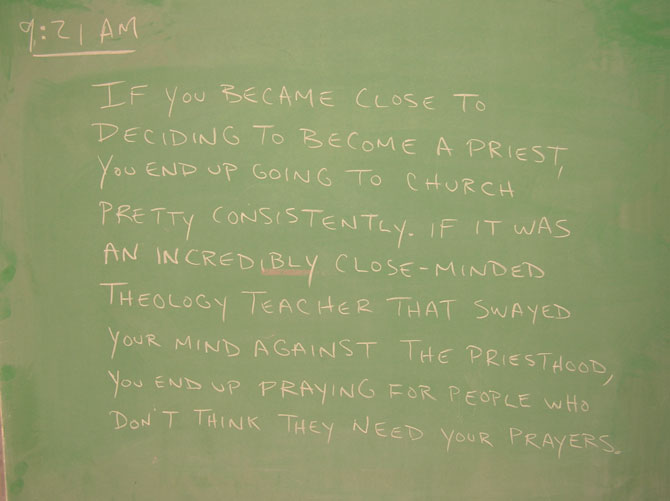 9:21 AM
IF YOU BECAME CLOSE TO
DECIDING TO BECOME A PRIEST,
YOU END UP GOING TO CHURCH
PRETTY CONSISTENTLY. IF IT WAS
AN INCREDIBLY CLOSE-MINDED
THEOLOGY TEACHER THAT SWAYED
YOUR MIND AGAINST THE PRIESTHOOD,
YOU END UP PRAYING FOR PEOPLE WHO
DON'T THINK THEY NEED YOUR PRAYERS.